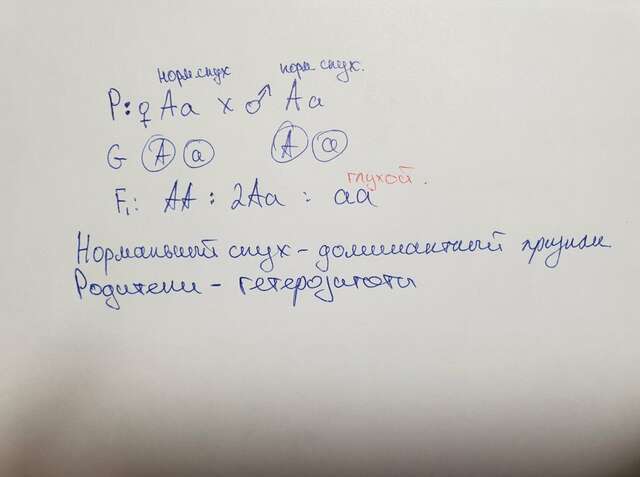 норм слух норм слух.
P: ♀ Aa x ♂ Aa
G A a A a
глухой.
F₁: AA : 2Aa : aa
Нормальный слух - доминантный признак
Родители - гетерозиготы